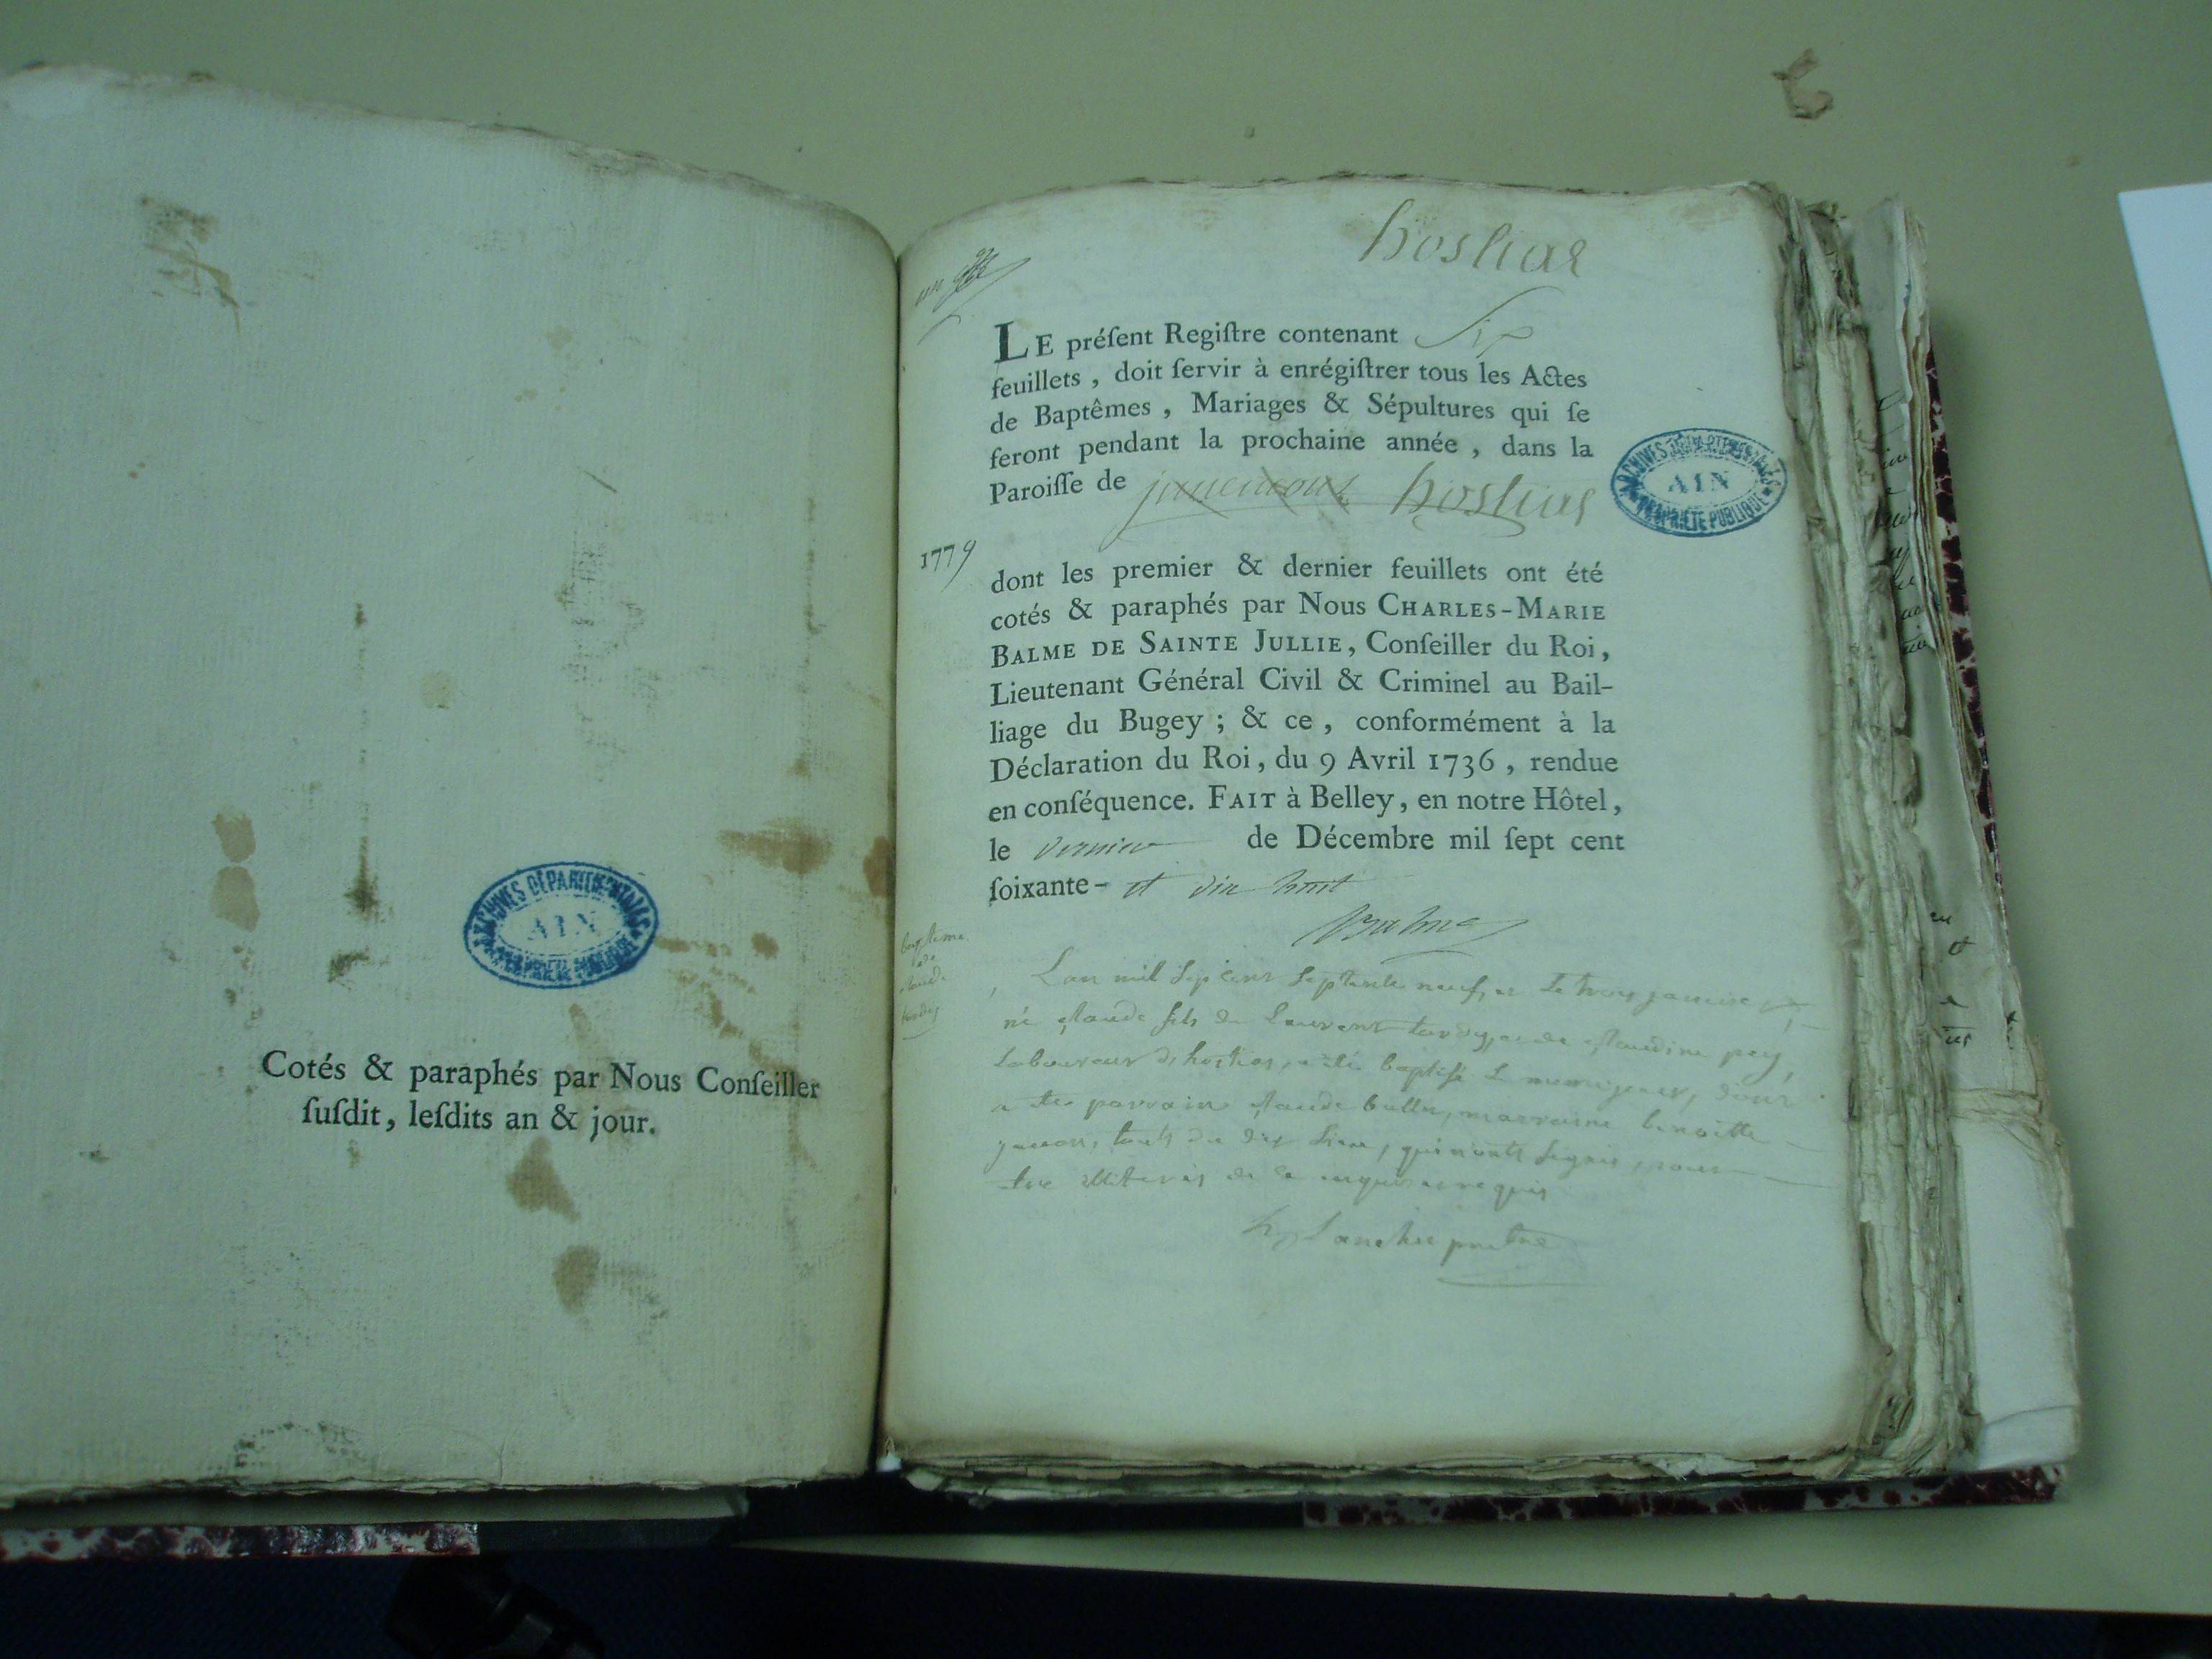 Cotés & paraphés par Nous Conſeiller
ſuſdit, leſdits an & jour.
ARCHIVES DÉPARTEMENTALES
AIN
PROPRIÉTÉ PUBLIQUE
hostias
un
LE préſent Regiſtre contenant Six
feuillets, doit ſervir à enrégiſtrer tous les Actes
de Baptêmes, Mariages & Sépultures qui ſe
feront pendant la prochaine année, dans la
Paroiſſe de hostias
ARCHIVES DÉPARTEMENTALES
AIN
PROPRIÉTÉ PUBLIQUE
1779
dont les premier & dernier feuillets ont été
cotés & paraphés par Nous CHARLES-MARIE
BALME DE SAINTE JULLIE, Conſeiller du Roi,
Lieutenant Général Civil & Criminel au Bail-
liage du Bugey; & ce, conformément à la
Déclaration du Roi, du 9 Avril 1736, rendue
en conſéquence. FAIT à Belley, en notre Hôtel,
le dernier de Décembre mil ſept cent
ſoixante- et dix huit
Balme
baptême
de
claude
L'an mil sept cent septante neuf, et le trois janvier
né claude fils de Laurent et de claudine
laboureur d'hostias, a été baptisé le
a été parrain claude marraine benoitte
touts du dit lieu, qui n'onts signés, pour
être illiterés de ce enquis et requis
prêtre